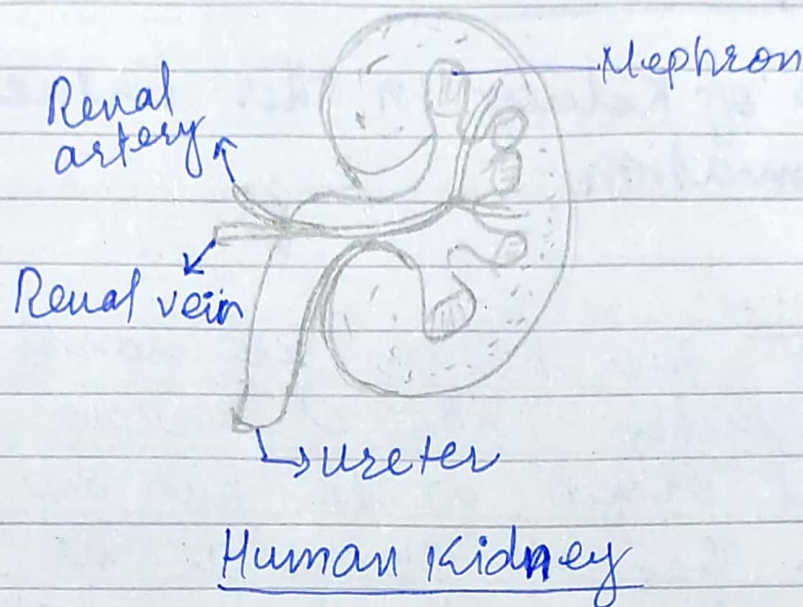 Nephron
Renal
artery
Renal vein
ureter
Human Kidney